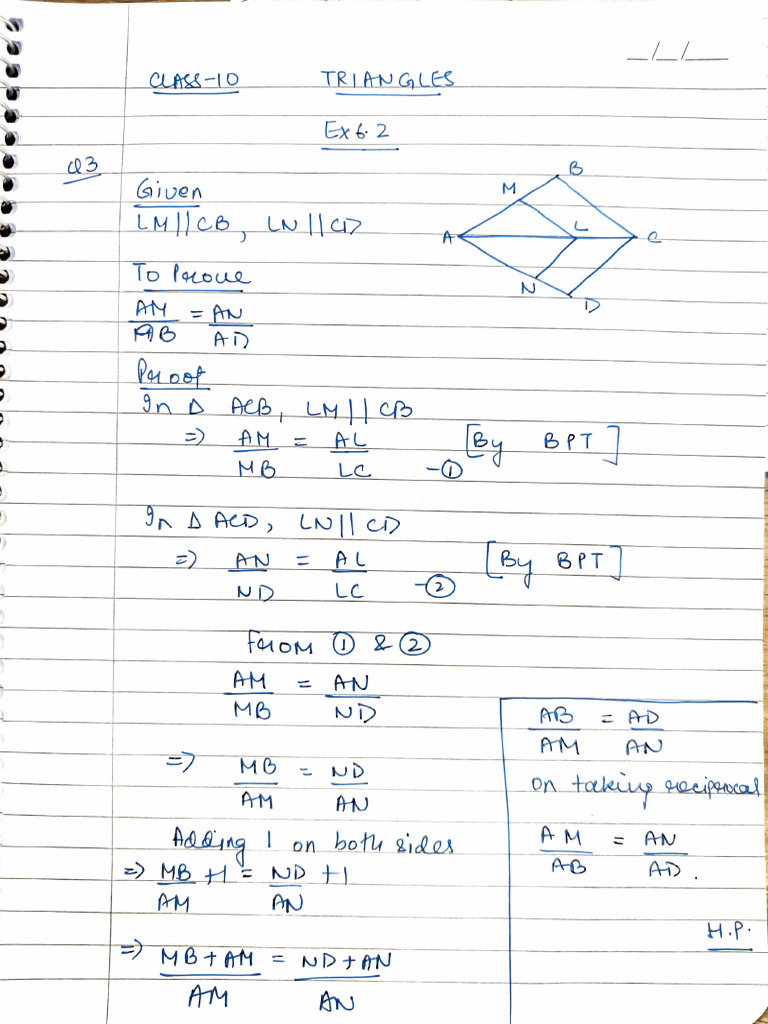 __/__/____
CLASS-10 TRIANGLES
Ex 6.2
Q3
Given
LM||CB, LN||CD
A M B L C N D
To Prove
AM/AB = AN/AD
Proof
In Δ ACB, LM||CB
=> AM/MB = AL/LC -① [By BPT]
In Δ ACD, LN||CD
=> AN/ND = AL/LC -② [By BPT]
From ① & ②
AM/MB = AN/ND
=> MB/AM = ND/AN
Adding 1 on both sides
=> MB/AM +1 = ND/AN +1
=> MB+AM/AM = ND+AN/AN
AB/AM = AD/AN
on taking reciprocal
AM/AB = AN/AD.
H.P.